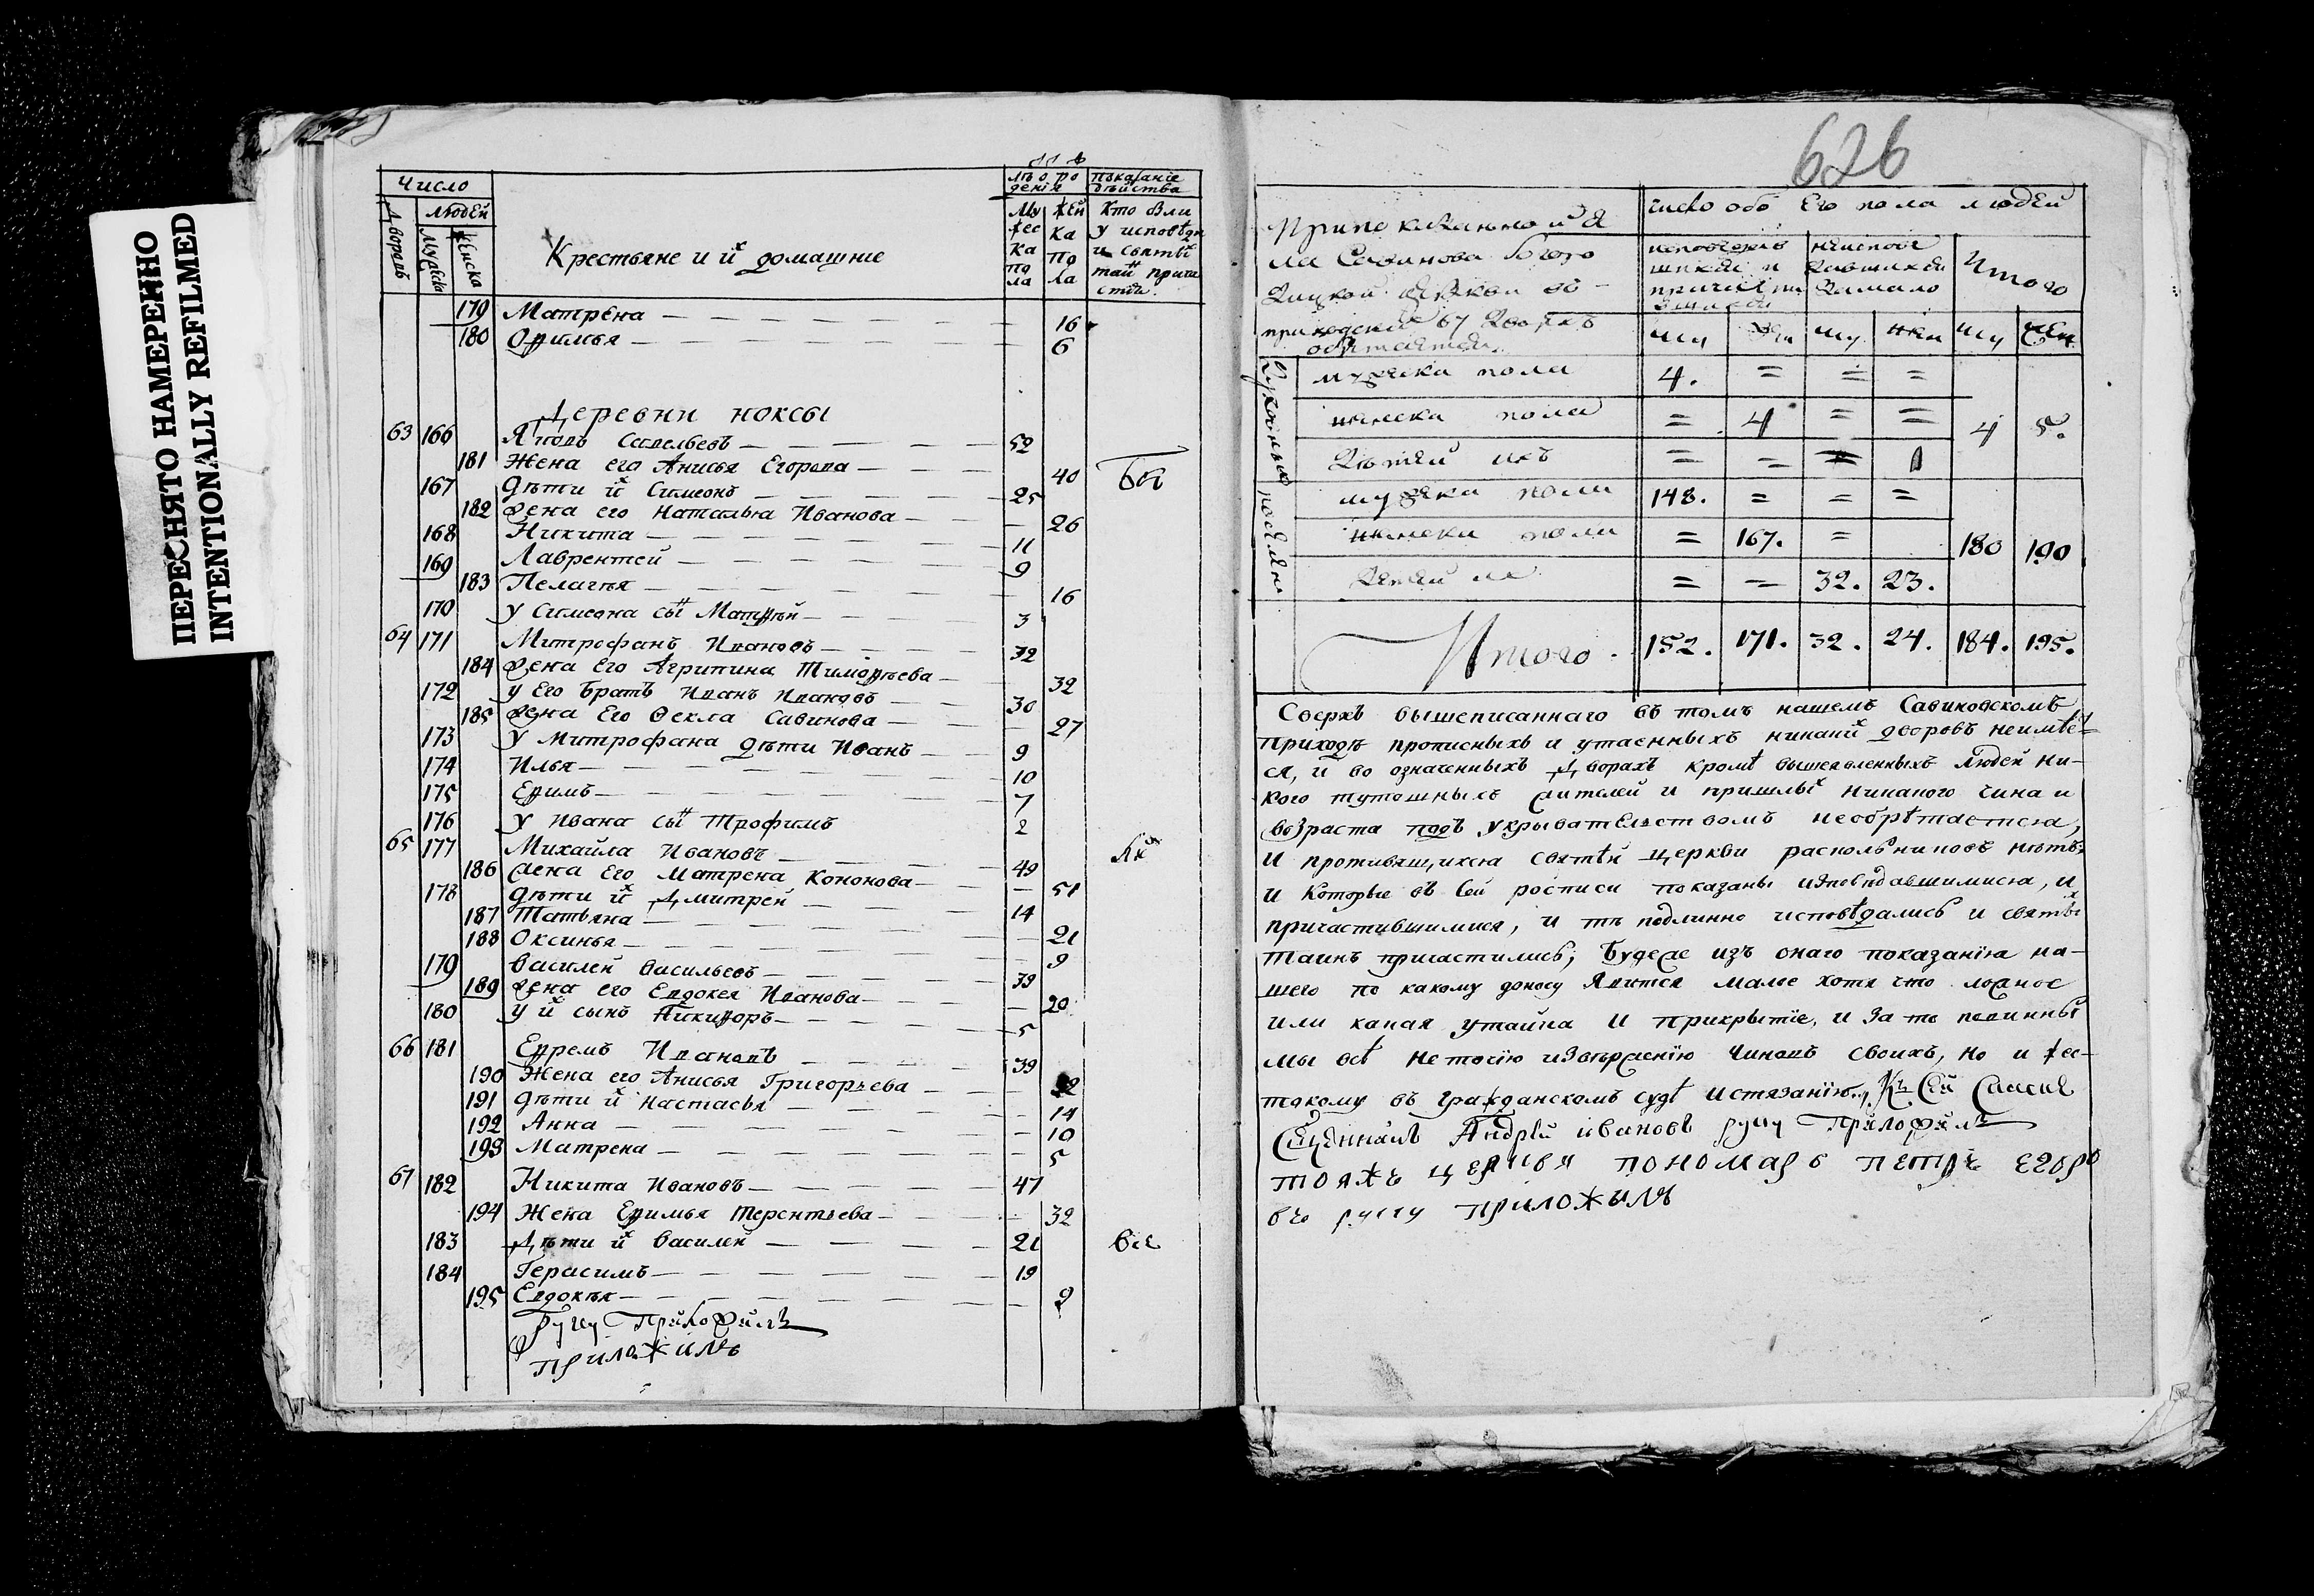 ПЕРЕСНЯТО НАМЕРЕННО
INTENTIONALLY REFILMED
Число
людей
Дворовъ
Мужска
женска
Крестьяне и их домашние
лѣ о ро
дения
Му
жес
ка
по
ла
жен
ка
по
ла
показание
бытства
Кто был
у исповеди
и святых
таин прича
стия
179 Матрена — 16
180 Офимья — 6
Деревни ноксы
63 166 Яковъ Савельевъ — 52
181 Жена его Анисья Егорова — 40
167 Дѣти их Симеонъ — 25
182 жена его Наталья Иванова — 26
168 Никита — 11
169 Лаврентей — 9
183 Пелагѣя — 16
170 у Симеона сын Матфѣй — 3
64 171 Митрофанъ Ивановъ — 32
184 жена Его Агрипина Тимофѣева — 32
172 у Его братъ Иванъ Ивановъ — 30
185 жена Его Фекла Савинова — 27
173 у Митрофана дѣти Иванъ — 9
174 Илья — 10
175 Ефимъ — 7
176 у Ивана сын Трофимъ 2
65 177 Михайла Ивановъ — 49
186 жена Его Матрена Кононова — 51
178 дѣти их Дмитрей — 14
187 Татьяна — 21
188 Оксинья — 9
179 Василей Васильевъ — 39
189 жена его Евдокея Иванова — 20
180 у их сынъ Никифоръ — 5
66 181 Ефремъ Ивановъ — 39
190 Жена его Анисья Григорьева —
191 дѣти их Настасья — 14
192 Анна — 10
193 Матрена — 5
67 182 Никита Ивановъ — 47
194 Жена Ефимья Терентьева — 32
183 Дѣти их Василей — 21
184 Герасимъ — 19
195 Евдокѣя — 9
руку Приложилъ
приложилъ
626
число обо Его пола людей
Савинова Бого
церкви во
приходский 67 дворехъ
обретается
Итого
му жен му жен му жен
Духовных
мужска пола 4. = = =
женска пола = 4 = = 4 5.
дѣтей ихъ = = = 1
поселяне
мужска пола 148. = = =
женска пола = 167. = 180 190
дѣтей их = = 32. 23.
Итого. 152. 171. 32. 24. 184. 195.
Сверхъ вышеписаннаго въ томъ нашемъ Савиновскомъ
приходѣ прописныхъ и утаенныхъ никаких дворовъ неимѣет
ся, и во означенныхъ дворахъ кромѣ вышеявленныхъ людей ни-
кого тутошныхъ жителей и пришлых никакого чина и
возраста подъ укрывательствомъ необрѣтается,
и противящихся святѣй церкви раскольниковъ нѣтъ
и Которые въ сей росписи показаны исповѣдавшимися, и
причастившимися, и тѣ подлинно исповѣдались и святых
таинъ причастились; Буде же изъ онаго показания на-
шего по какому доносу явится малое хотя что ложное
или какая утайка и прикрытие, и за то повинны
мы всѣ не точию извѣржению чиновъ своихъ, но и жес-
токому въ гражданскомъ судѣ истязанию, Къ Сей
Священникъ Андрей Ивановъ руку Приложилъ
тояжъ церкви пономарь петръ егоро
въ руку приложилъ